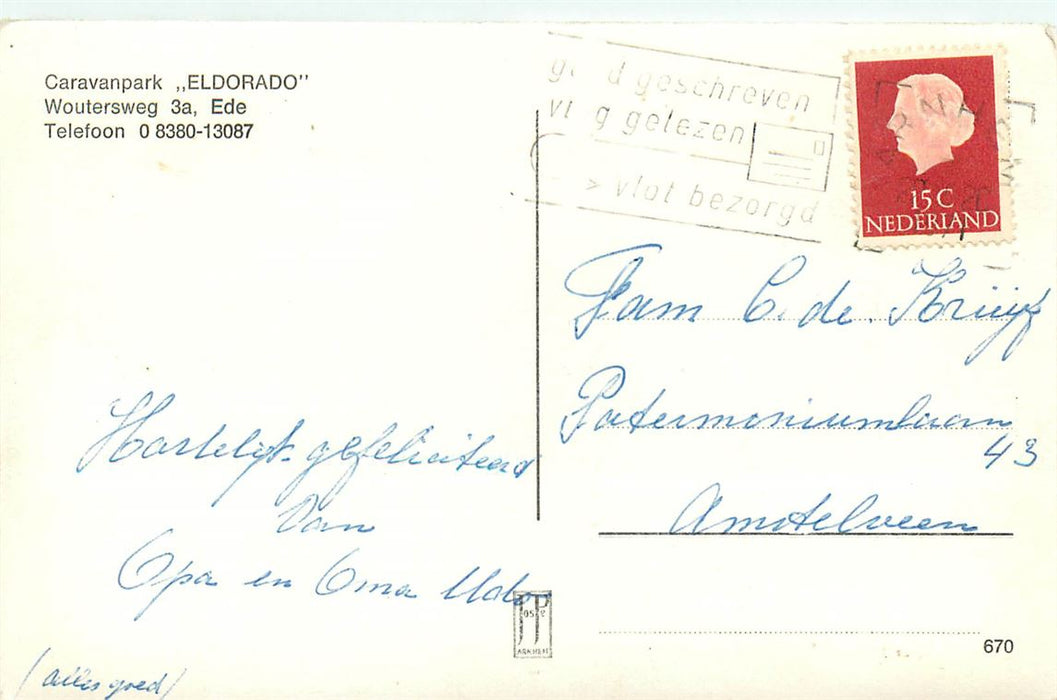 Caravanpark „ELDORADO”
Woutersweg 3a, Ede
Telefoon 0 8380-13087
Hartelijk gefeliciteerd
van
Opa en Oma
(alles goed)
geschreven
gelezen
> vlot bezorgd
15 C
NEDERLAND
Fam C. de. Kruijf
Patermoniumlaan
43
Amstelveen
JP
ARNHEM
670